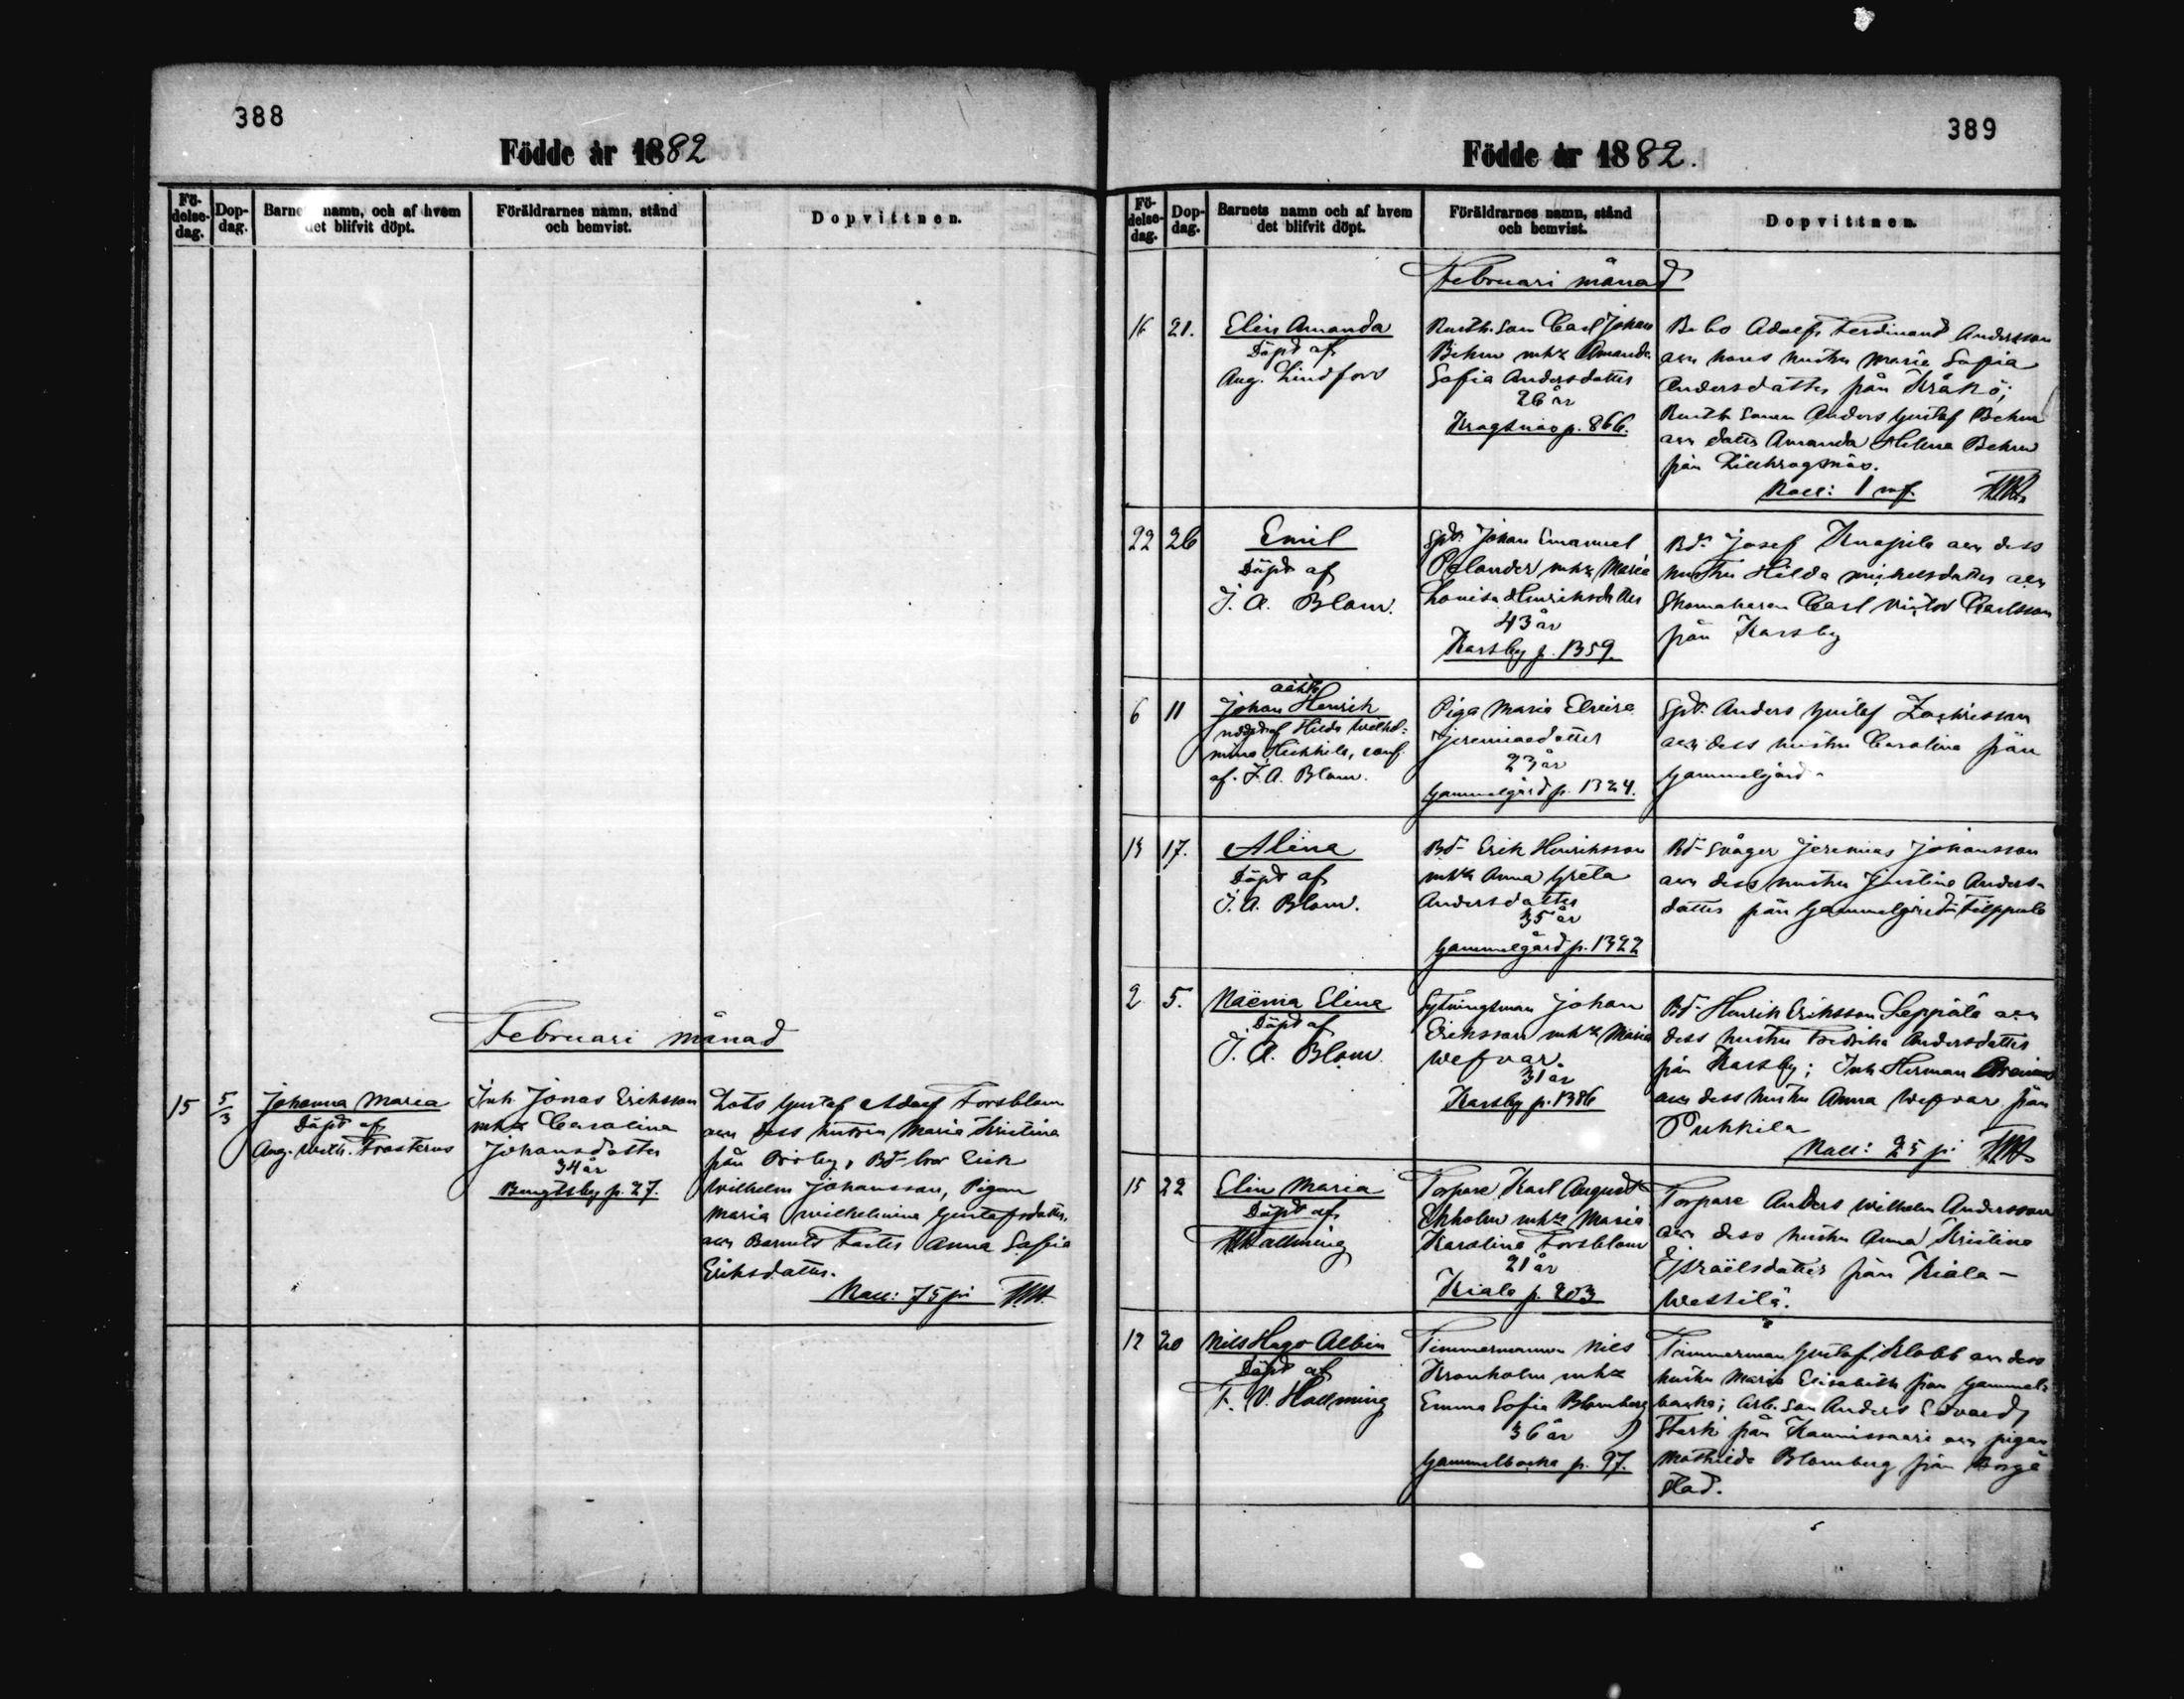 388
Födde år 1882
Fö-
delse-
dag.
Dop-
dag.
Barnets namn, och af hvem
det blifvit döpt.
Föräldrarnes namn, stånd
och hemvist.
Dopvittnen.
Februari månad
15
5/3
Johanna Maria
Döpt af
Aug. Wilh. Frosterus
Inh. Jonas Eriksson
mhu Carolina
Johansdotter
34 år
Bengtsby p. 27.
Lots Gustaf Adolf Forsblom
och dess hustru Maria Kristina
från Orrby, Bd bror Erik
Wilhelm Johansson, Pigan
Maria Wilhelmina Gustafsdotter,
och Barnets Faster Anna Sofia
Eriksdotter.
Koll: 75 pi
389
Födde år 1882.
Fö-
delse-
dag.
Dop-
dag.
Barnets namn och af hvem
det blifvit döpt.
Föräldrarnes namn, stånd
och hemvist.
Dopvittnen.
Februari månad
16
21.
Elin Amanda
Döpt af
Aug. Lindfors
Rusth. Son Carl Johan
Behm mhu Amanda
Sofia Andersdotter
26 år
Kragsnäs p. 866.
Adolf Ferdinand Andersson
och hans hustru Maria Sofia
Andersdotter från Kråkö;
Rusth. Sonen Anders Gustaf Behm
och dottr Amanda Helena Behm
från Lillkragsnäs.
Koll: 1 mf.
22
26
Emil
Döpt af
J. A. Blom.
Spt. Johan Emanuel
Polander mhu Maria
Lovisa Henriksdotter
43 år
Karsby p. 1359.
Bd. Josef Knapila och dess
hustru Hilda Mickelsdotter och
Skomakaren Carl Victor Carlsson
från Karsby
6
11
oäkta
Johan Henrik
nöddöpt af Hilda Wilhel-
mina Heikkilä, conf.
af J. A. Blom.
Piga Maria Elvira
Jeremiaedotter
23 år
Gammelgård p. 1324.
Spt. Anders Gustaf Zachrisson
och dess hustru Carolina från
Gammelgård.
13
17.
Alina
Döpt af
J. A. Blom.
Bd Erik Henriksson
mhu Anna Greta
Andersdotter
35 år
Gammelgård p. 1322
Bd Svåger Jeremias Johansson
och dess hustru Justina Anders-
dotter från Gammelgård Filppula
2
5.
Naëma Elina
Döpt af
J. A. Blom.
Sytningsman Johan
Eriksson mhu Maria
Wefvar
31 år
Karsby p. 1386
Bd Henrik Eriksson Leppälä och
dess hustru Fredrika Andersdotter
från Karsby; Inh. Herman
och dess hustru Anna Wefvar från
Pukkila
Koll: 25 pi
15
22
Elin Maria
Döpt af
Hallming
Torpare Karl August
Ekholm mhu Maria
Karolina Forsblom
21 år
Kiala p. 203
Torpare Anders Wilhelm Andersson
och dess hustru Anna Kristina
Israelsdotter från Kiala-
Westilä.
12
20
Nils Hugo Albin
Döpt af
F. V. Hallming
Timmermannen Nils
Kronholm mhu
Emma Sofia Blomberg
36 år
Gammelbacka p. 97.
Timmerman Gustaf Klobb och dess
hustru Maria Elisabeth från Gammel-
backa; Arb. Son Anders Edvard
Stark från Kannissaari och pigan
Mathilda Blomberg från Borgå
stad.